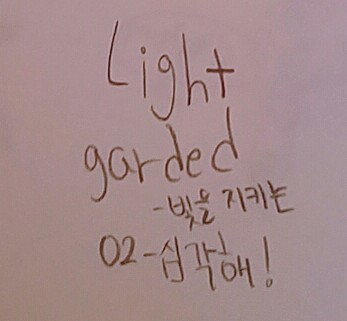 Light
garded
-빛을 지키는
02-심각해!